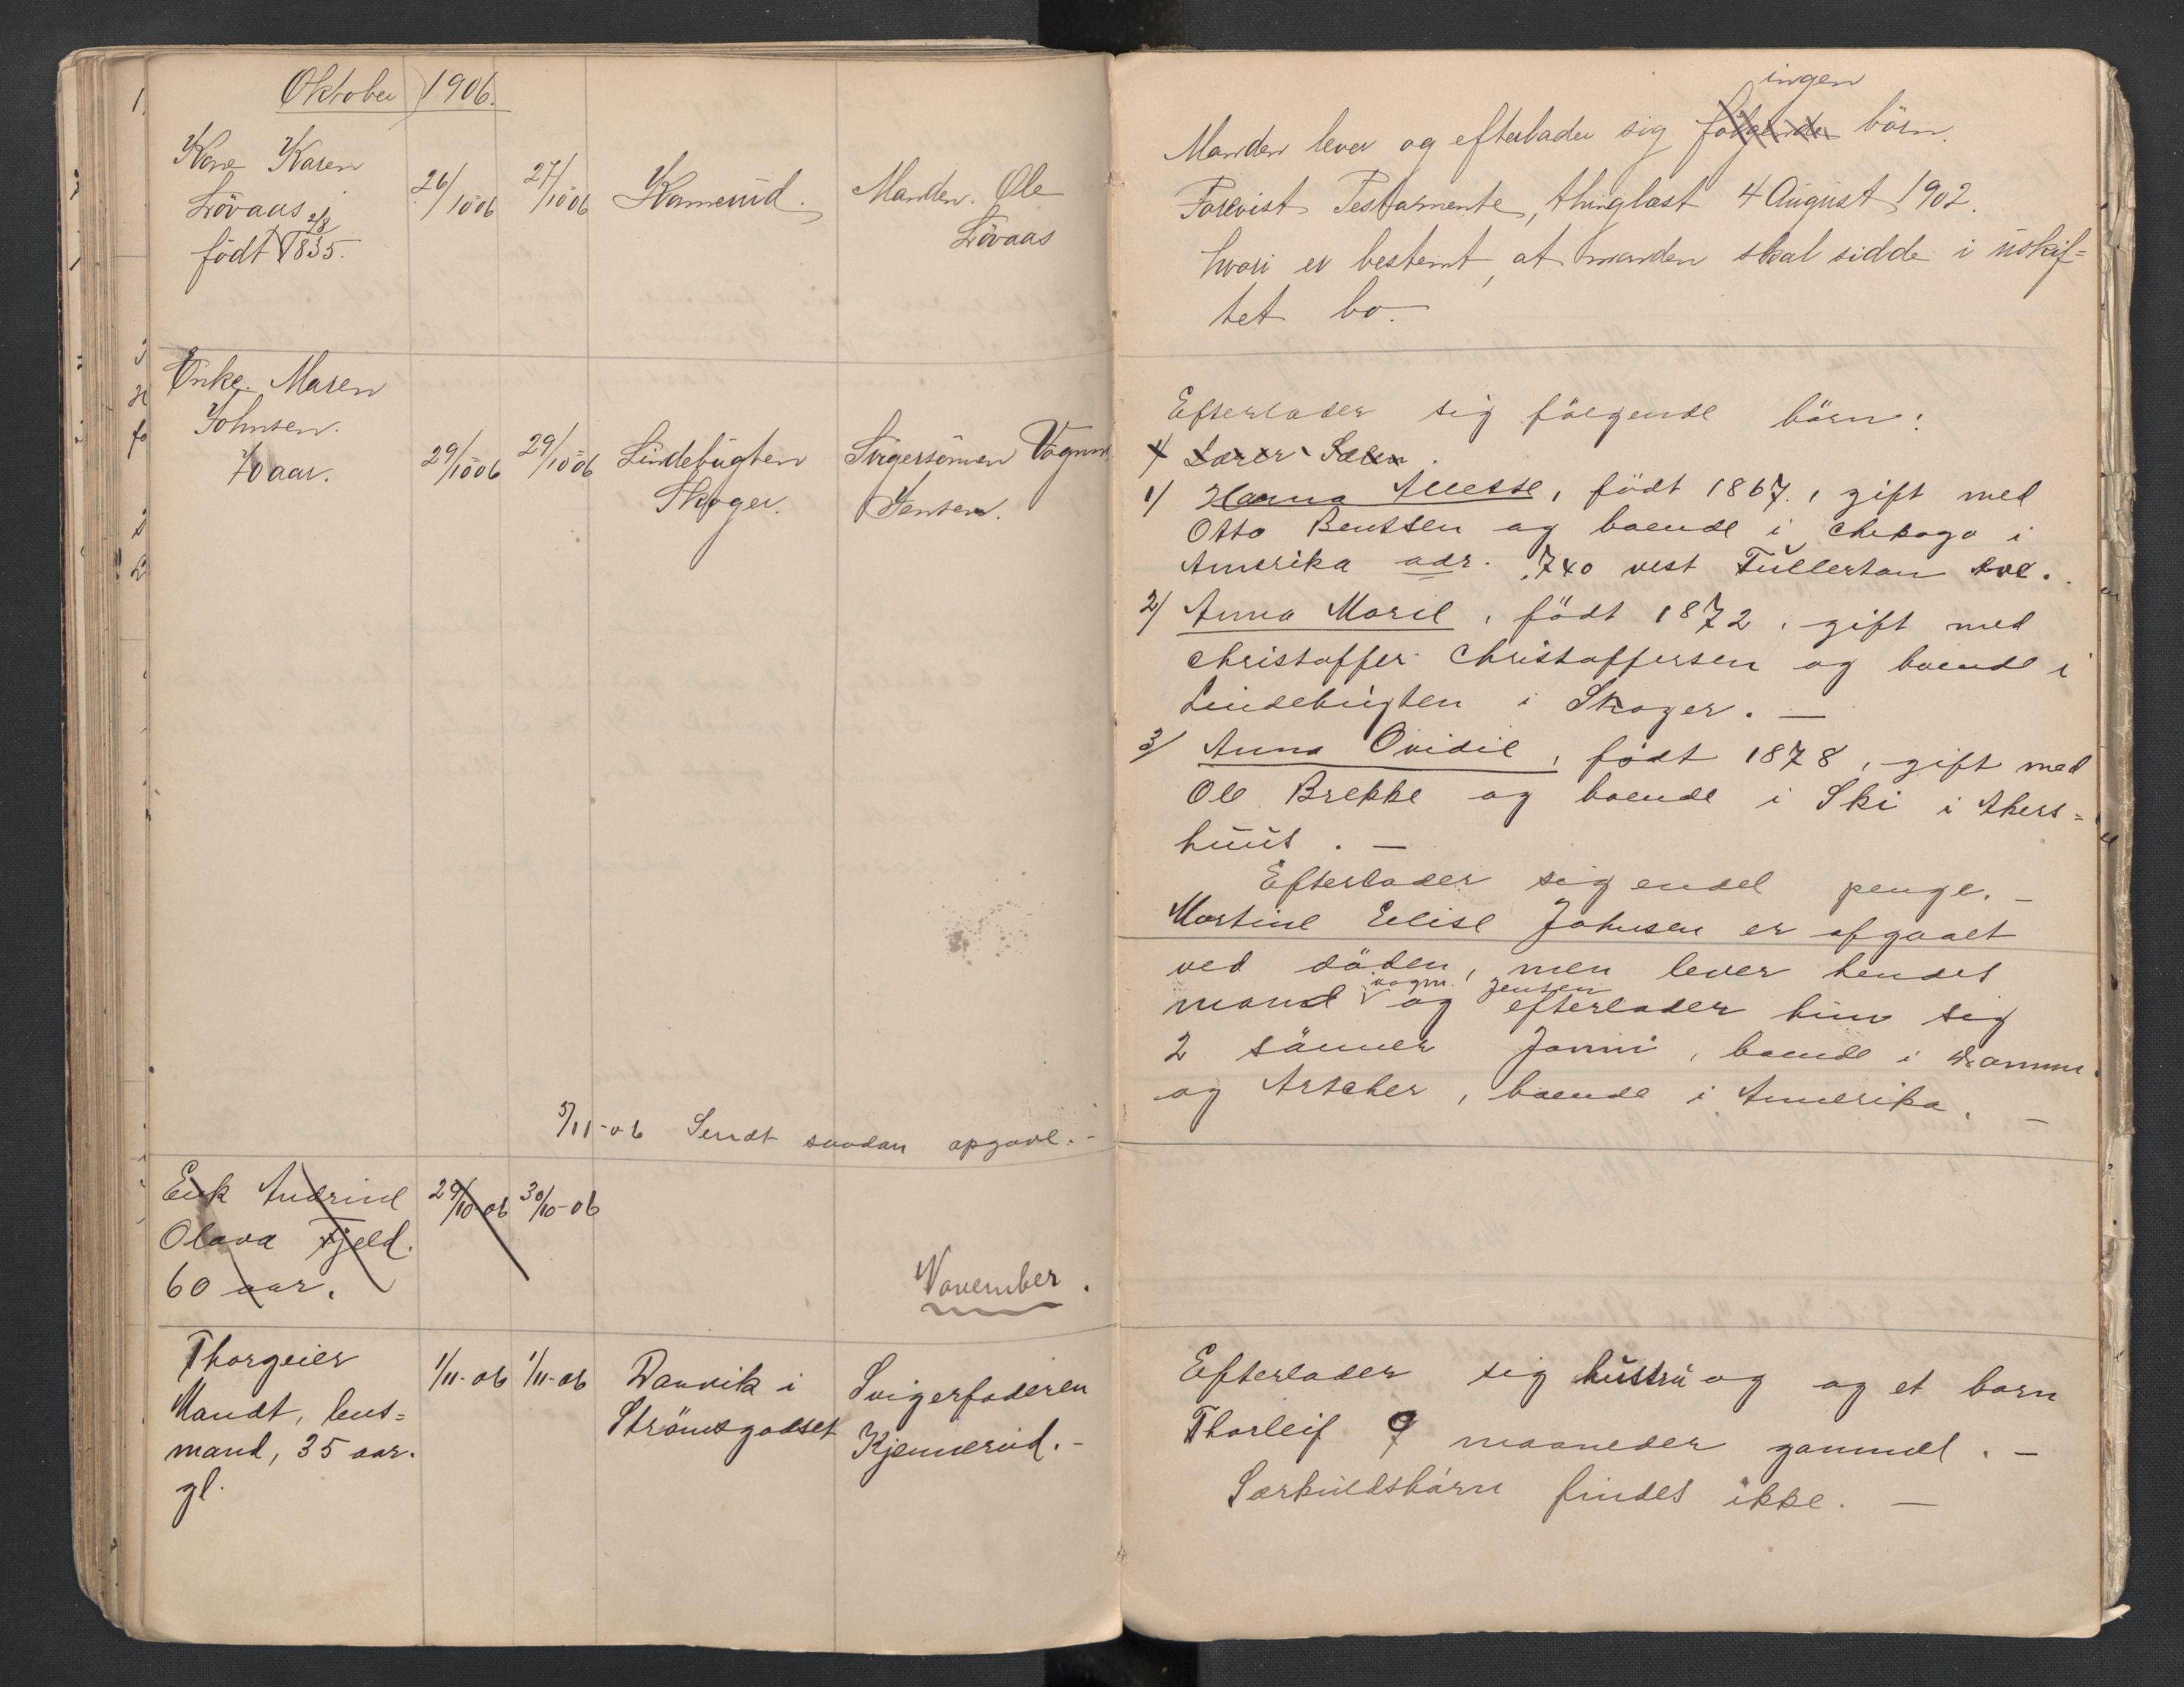 Oktober 1906.
Kone Karen
Lövaas
2/8
födt 1835.
26/10 06
27/10 06
Kamerud.
Manden Ole
Lövaas
ingen
Manden lever og efterlader sig følgende børn.
Forevist Testamente, thinglæst 4 August 1902.
hvori er bestemt, at manden skal sidde i uskif=
tet bo.
Enke Maren
Johnsen.
70 aar.
29/10 06
29/10 06
Lindebugten
Skoger.
Svigersönnen Vognm.
Jensen.
Efterlader sig følgende börn:
1)
1) Hanna , födt 1867, gift med
Otto Bentsen og boende i Chikago i
Amerika adr. 740 vest Fullerton Ave.
2) Anna Marie, födt 1872, gift med
Christoffer Christoffersen og boende i
Lindebugten i Skoger. —
3) Anna Ovidie, födt 1878, gift med
Ole Brekke og boende i Ski i Akers=
huus. —
Efterlader sig endel penge. —
Martine Elise Johnsen er afgaaet
ved döden, men lever hendes
vogm. Jensen
mand og efterlader hun sig
2 sönner Jonni, boende i Dramm.
og Artcher, boende i Amerika. —
5/11-06 Sendt saadan opgave. -
Enk Andrine
Olava Fjeld.
60 aar.
29/10-06
30/10-06
November.
Thorgeier
Mandt, hus=
mand, 35 aar.
gl.
1/11-06
1/11-06
Danvik i
Strömsgodset
Svigerfaderen
Kjennerud. -
Efterlader sig hustru og og et barn
Thorleif 9 maaneder gammel. —
Særkuldsbörn findes ikke. —